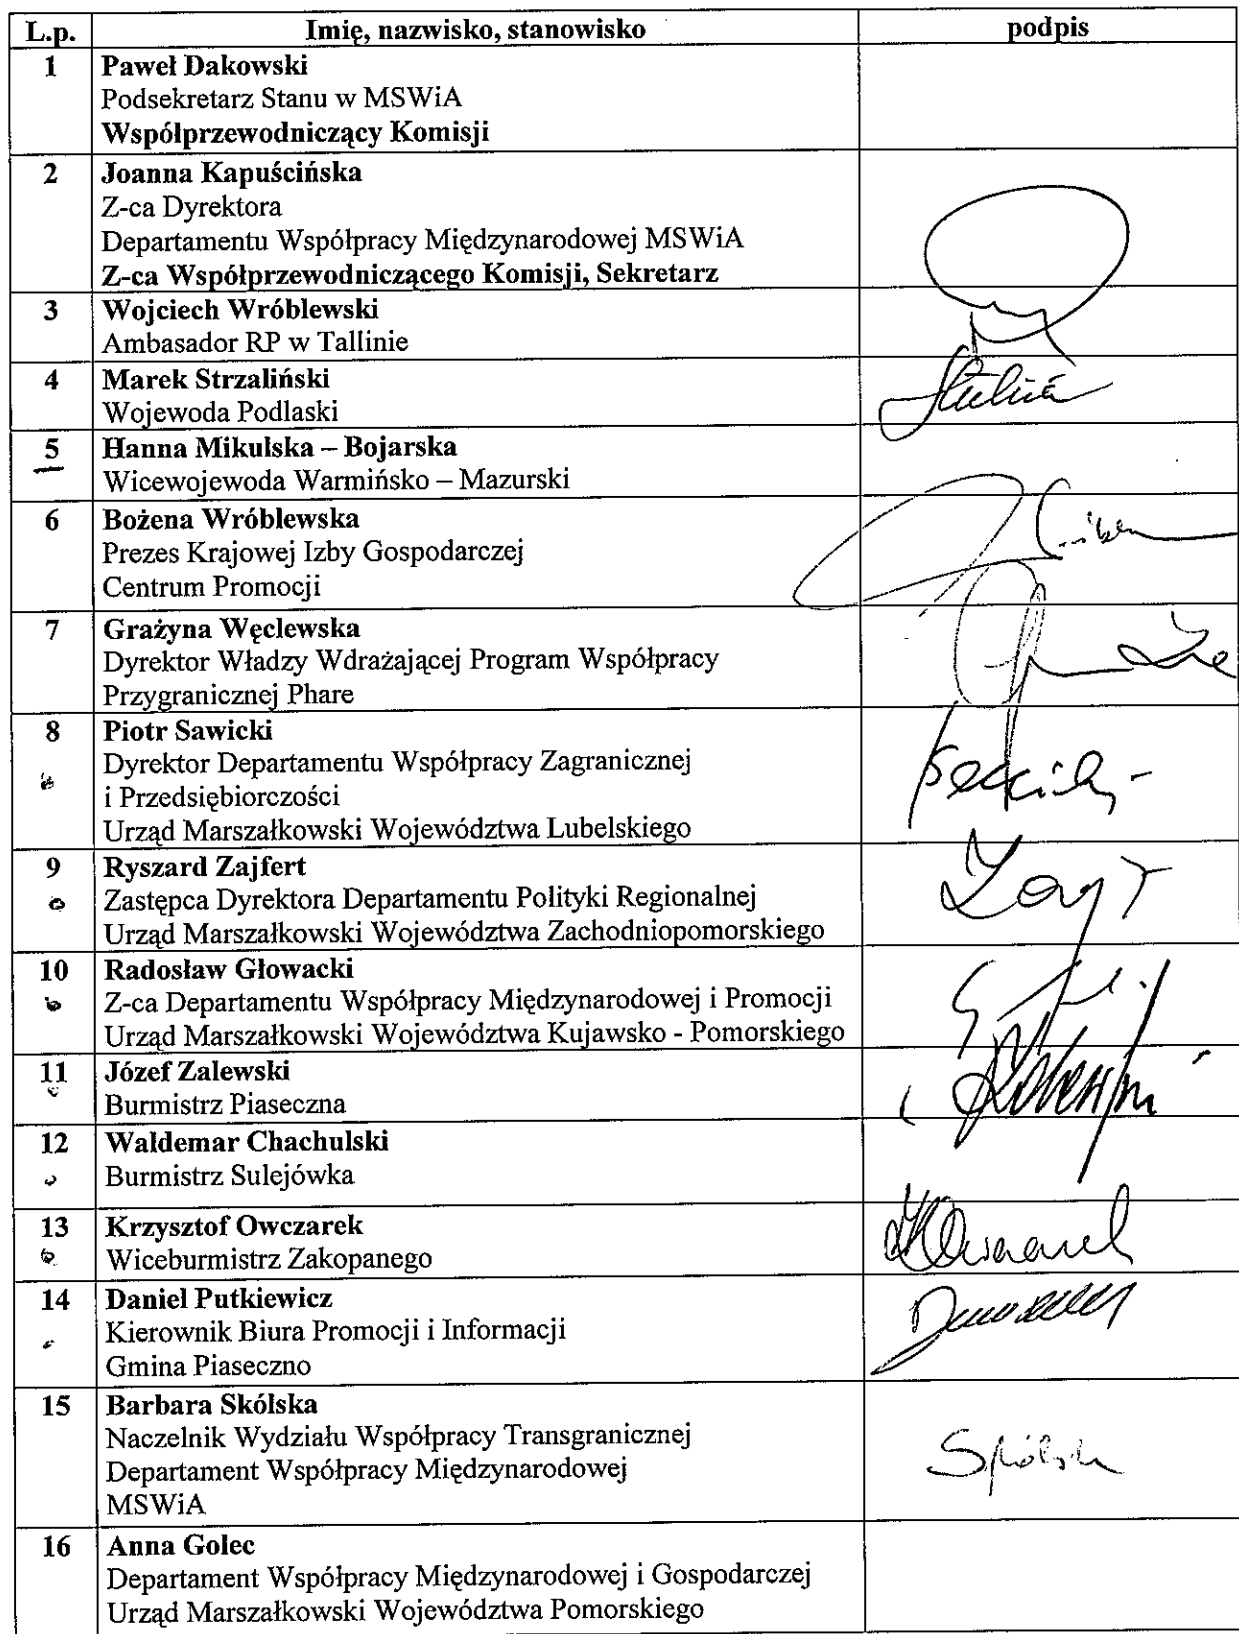 L.p. Imię, nazwisko, stanowisko podpis
1 Paweł Dakowski
Podsekretarz Stanu w MSWiA
Współprzewodniczący Komisji
2 Joanna Kapuścińska
Z-ca Dyrektora
Departamentu Współpracy Międzynarodowej MSWiA
Z-ca Współprzewodniczącego Komisji, Sekretarz
3 Wojciech Wróblewski
Ambasador RP w Tallinie
4 Marek Strzaliński
Wojewoda Podlaski
5 Hanna Mikulska – Bojarska
Wicewojewoda Warmińsko – Mazurski
6 Bożena Wróblewska
Prezes Krajowej Izby Gospodarczej
Centrum Promocji
7 Grażyna Węclewska
Dyrektor Władzy Wdrażającej Program Współpracy
Przygranicznej Phare
8 Piotr Sawicki
Dyrektor Departamentu Współpracy Zagranicznej
i Przedsiębiorczości
Urząd Marszałkowski Województwa Lubelskiego
9 Ryszard Zajfert
Zastępca Dyrektora Departamentu Polityki Regionalnej
Urząd Marszałkowski Województwa Zachodniopomorskiego
10 Radosław Głowacki
Z-ca Departamentu Współpracy Międzynarodowej i Promocji
Urząd Marszałkowski Województwa Kujawsko - Pomorskiego
11 Józef Zalewski
Burmistrz Piaseczna
12 Waldemar Chachulski
Burmistrz Sulejówka
13 Krzysztof Owczarek
Wiceburmistrz Zakopanego
14 Daniel Putkiewicz
Kierownik Biura Promocji i Informacji
Gmina Piaseczno
15 Barbara Skólska
Naczelnik Wydziału Współpracy Transgranicznej
Departament Współpracy Międzynarodowej
MSWiA
16 Anna Golec
Departament Współpracy Międzynarodowej i Gospodarczej
Urząd Marszałkowski Województwa Pomorskiego